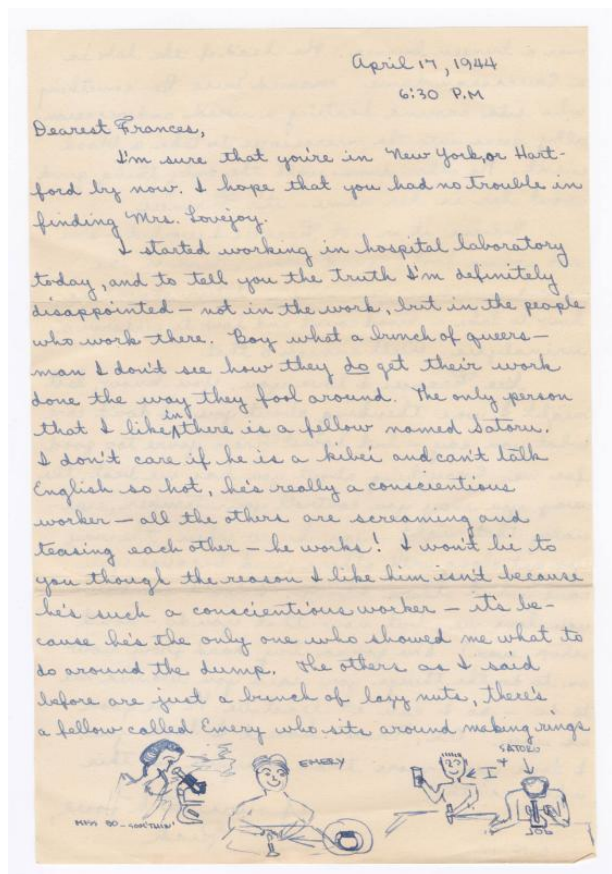 April 17, 1944
6:30 P.M
Dearest Frances,
I'm sure that you're in New York, or Hart-
ford by now. I hope that you had no trouble in
finding Mrs. Lovejoy.
I started working in hospital laboratory
today, and to tell you the truth I'm definitely
disappointed — not in the work, but in the people
who work there. Boy what a bunch of queers —
man I don't see how they do get their work
done the way they fool around. The only person
that I like in there is a fellow named Satoru.
I don't care if he is a kibei and can't talk
English so hot, he's really a conscientious
worker — all the others are screaming and
teasing each other — he works! I won't lie to
you though the reason I like him isn't because
he's such a conscientious worker — it's be-
cause he's the only one who showed me what to
do around the dump. The others as I said
before are just a bunch of lazy nuts, there's
a fellow called Emery who sits around making rings
MISS SO-SOMTHIN'
EMERY
I
SATORU
JOB